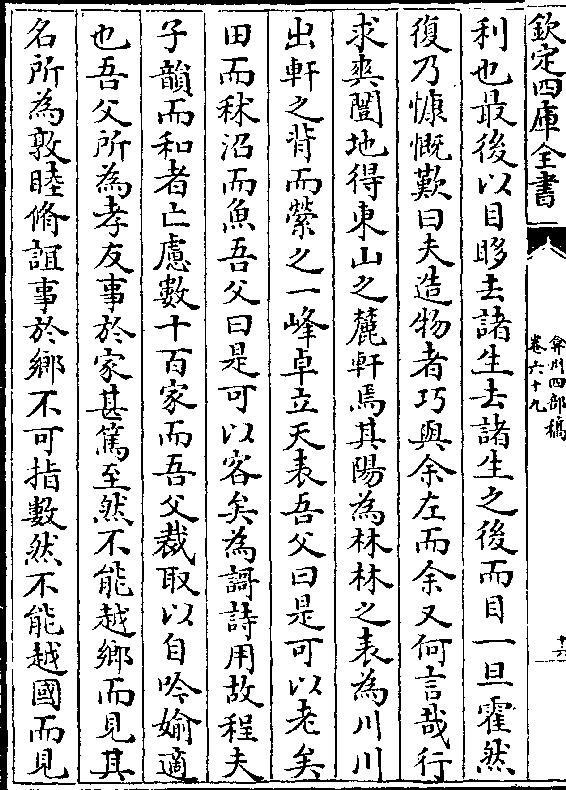 欽定四庫全書
弇州四部稿
卷六十九
十六
利也最後以目眵去諸生去諸生之後而目一旦霍然
復乃慷慨歎曰夫造物者巧與余左而余又何言哉行
求爽闓地得東山之麓軒焉其陽為林林之表為川川
出軒之背而縈之一峰卓立天表吾父曰是可以老矣
田而秫沼而魚吾父曰是可以客矣為謌詩用故程夫
子韻而和者亡慮數十百家而吾父裁取以自吟媮適
也吾父所為孝友事於家甚篤至然不能越鄉而見其
名所為敦睦脩誼事於鄉不可指數然不能越國而見